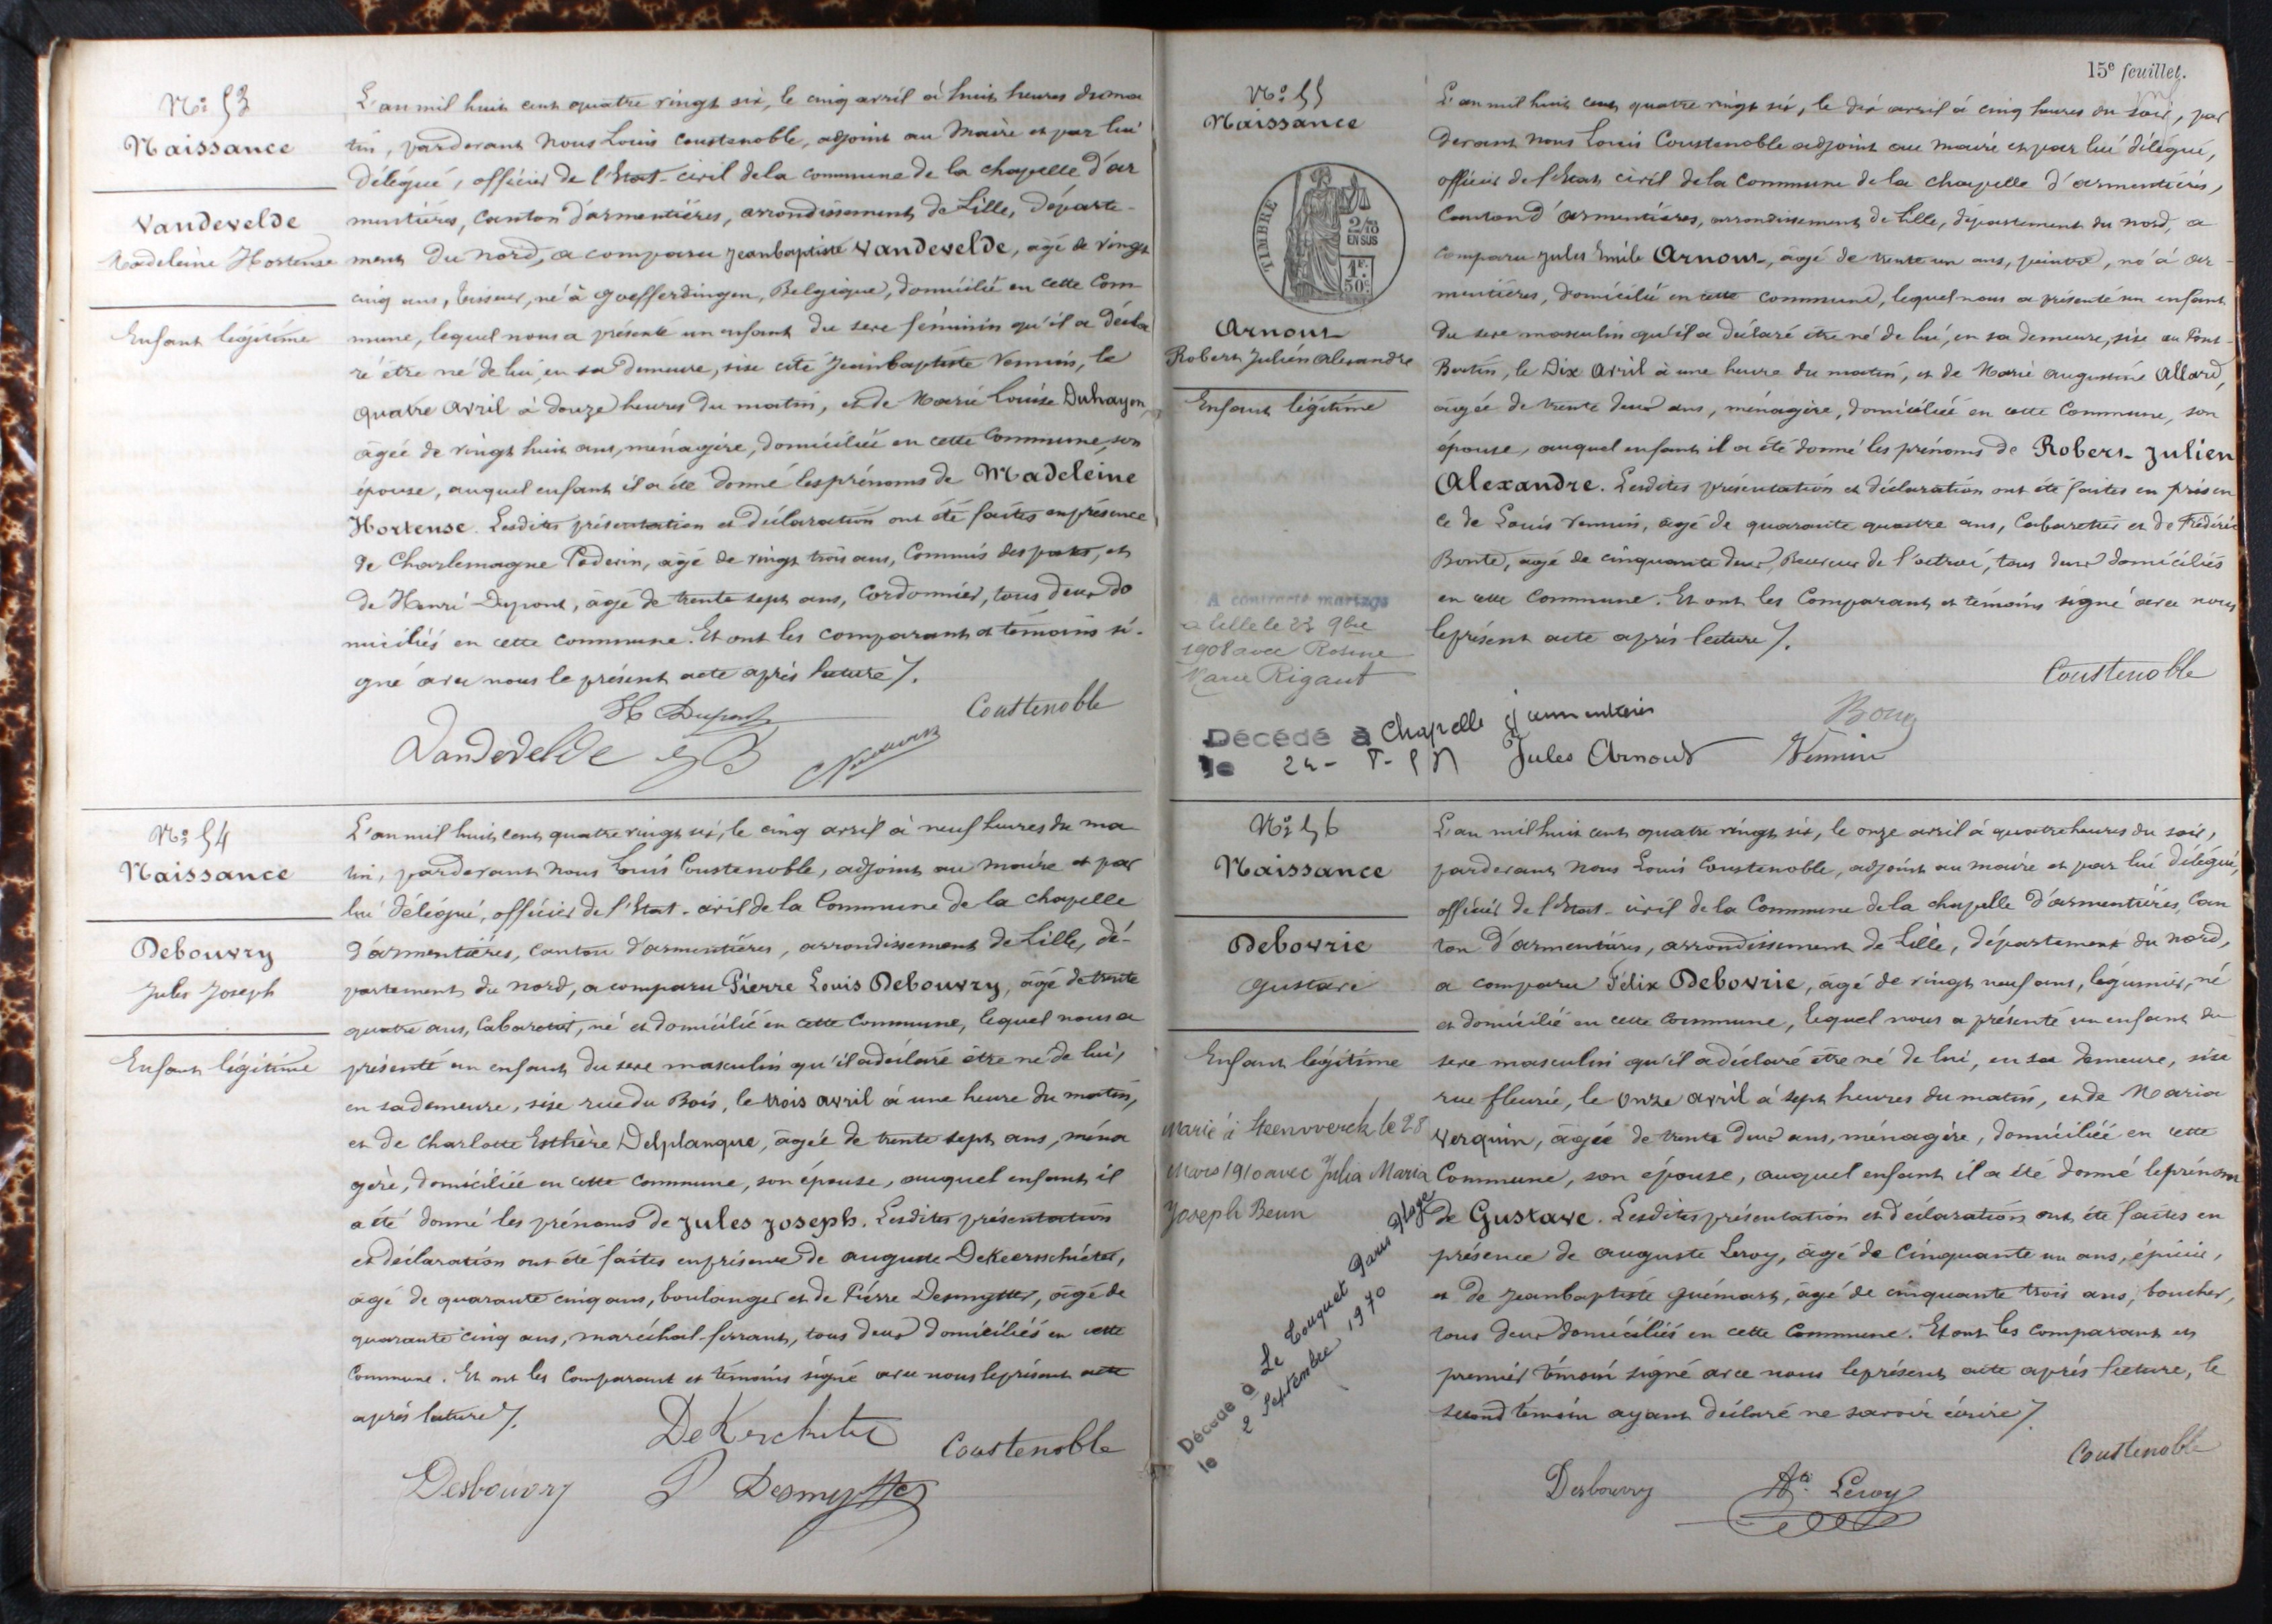 N° 53
Naissance
Vandevelde
Madeleine Hortense
Enfant légitime
L'an mil huit cent quatre vingt six, le cinq avril à huit heures du ma
tin, pardevant nous Louis Coustenoble, adjoint au Maire et par lui
délégué, officier de l'Etat-civil de la commune de la chapelle d'ar
mentières, canton d'armentières, arrondissement de Lille, départe-
ment du nord, a comparu Jeanbaptiste Vandevelde, âgé de vingt
cinq ans, tisseur, né à Goefferdingen, Belgique, domicilié en cette Com-
mune, lequel nous a présenté un enfant du sexe féminin qu'il a décla
ré être né de lui, en sa demeure, sise cité Jeanbaptiste Vennin, le
quatre avril à douze heures du matin, et de Marie Louise Duhayon,
âgée de vingt huit ans, ménagère, domiciliée en cette Commune, son
épouse, auquel enfant il a été donné les prénoms de Madeleine
Hortense. Lesdites présentation et déclaration ont été faites en présence
de Charlemagne Poderin, âgé de vingt trois ans, Commis des postes, et
de Henri Dupont, âgé de trente sept ans, Cordonnier, tous deux do
miciliés en cette commune. Et ont les comparant et témoins si-
gné avec nous le présent acte après lecture /.
H Dupont
Coustenoble
Vandevelde
N° 54
Naissance
Debouvry
Jules Joseph
Enfant légitime
L'an mil huit cent quatre vingt six, le cinq avril à neuf heures du ma
tin, pardevant nous Louis Coustenoble, adjoint au maire et par
lui délégué, officier de l'Etat-civil de la Commune de la chapelle
d'armentières, canton d'armentières, arrondissement de Lille, dé-
partement du nord, a comparu Pierre Louis Debouvry, âgé de trente
quatre ans, Cabaretier, né et domicilié en cette Commune, lequel nous a
présenté un enfant du sexe masculin qu'il a déclaré être né de lui,
en sa demeure, sise rue du Bois, le trois avril à une heure du matin,
et de Charlotte Esthère Delplanque, âgée de trente sept ans, ména
gère, domiciliée en cette commune, son épouse, auquel enfant il
a été donné les prénoms de Jules Joseph. Lesdites présentation
et déclaration ont été faites en présence de auguste DeKeersschieter,
âgé de quarante cinq ans, boulanger et de Pierre Desmytter, âgé de
quarante cinq ans, maréchal-ferrant, tous deux domiciliés en cette
Commune. Et ont les Comparant et témoins signé avec nous le présent acte
après lecture /.
DeKerchiter
Coustenoble
Desbouvry
P Desmytter
15e feuillet.
N° 55
Naissance
TIMBRE
2/10
EN SUS
1F.
50c.
Arnout
Robert Julien Alexandre
Enfant légitime
A contracté mariage
a Lille le 23 9bre
1908 avec Rosine
Marie Rigaut
Décédé à Chapelle d'armentières
le 24-
L'an mil huit cent quatre vingt six, le dix avril à cinq heures du soir, par
devant nous Louis Coustenoble adjoint au maire et par lui délégué,
officier de l'Etat civil de la Commune de la chapelle d'armentières,
Canton d'armentières, arrondissement de Lille, département du nord, a
comparu Jules Emile Arnout, âgé de trente un ans, peintre, né à ar-
mentières, domicilié en cette commune, lequel nous a présenté un enfant
du sexe masculin qu'il a déclaré être né de lui, en sa demeure, sise au Pont-
Bertin, le Dix Avril à une heure du matin, et de Marie Augustine Allard,
âgée de trente deux ans, ménagère, domiciliée en cette Commune, son
épouse, auquel enfant il a été donné les prénoms de Robert Julien
Alexandre. Lesdites présentation et déclaration ont été faites en présen
ce de Louis Vennin, âgé de quarante quatre ans, Cabaretier et de Frédéric
Bonte, âgé de cinquante deux, Receveur de l'octroi, tous deux domiciliés
en cette Commune. Et ont les Comparant et témoins signé avec nous
le présent acte après lecture /.
Coustenoble
Jules Arnout
Vennin
N° 56
Naissance
Debovrie
Gustave
Enfant légitime
Marié à Steenwerck le 28
Mars 1910 avec Julia Maria
Joseph Beun
Décédé à Le Touquet Paris Plage
le 2 Septembre 1970
L'an mil huit cent quatre vingt six, le onze avril à quatre heures du soir,
pardevant nous Louis Coustenoble, adjoint au maire et par lui délégué,
officier de l'Etat-civil de la Commune de la chapelle d'armentières, Can
ton d'armentières, arrondissement de Lille, département du nord,
a comparu Félix Debovrie, âgé de vingt neuf ans, légumier, né
et domicilié en cette commune, lequel nous a présenté un enfant du
sexe masculin qu'il a déclaré être né de lui, en sa demeure, sise
rue fleurie, le onze avril à sept heures du matin, et de Maria
Verquin, âgée de trente deux ans, ménagère, domiciliée en cette
Commune, son épouse, auquel enfant il a été donné le prénom
de Gustave. Lesdites présentation et déclaration ont été faites en
présence de auguste Leroy, âgé de Cinquante un ans, épicier,
et de Jeanbaptiste Guémart, âgé de cinquante trois ans, boucher,
tous deux domiciliés en cette Commune. Et ont les comparant et
premier témoin signé avec nous le présent acte après lecture, le
second témoin ayant déclaré ne savoir écrire /.
Coustenoble
Desbouvry
Ate Leroy